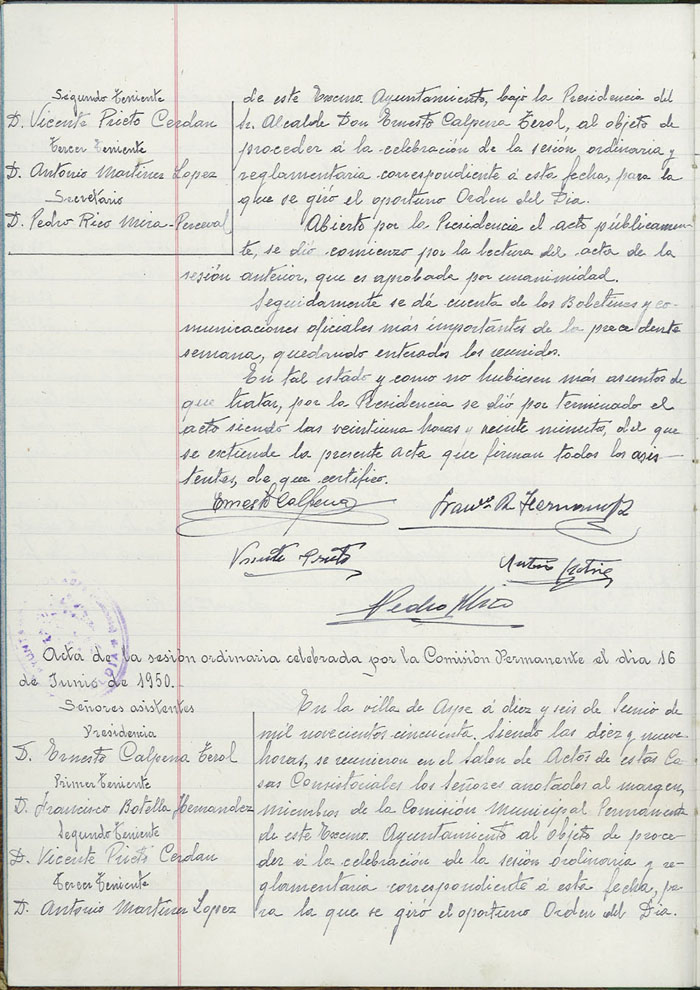 Segundo Teniente
D. Vicente Prieto Cerdan
Tercer Teniente
D. Antonio Martinez Lopez
Secretario
D. Pedro Rico Mira-Perceval
de este Excmo. Ayuntamiento, bajo la Presidencia del
Sr. Alcalde Don Ernesto Calpena Terol, al objeto de
proceder á la celebración de la sesión ordinaria y
reglamentaria correspondiente á esta fecha, para la
que se giró el oportuno Orden del Dia.
Abierto por la Presidencia el acto públicamen-
te, se dió comienzo por la lectura del acta de la
sesión anterior, que es aprobada por unanimidad.
Seguidamente se dá cuenta de los Boletines y co-
municaciones oficiales más importantes de la precedente
semana, quedando enterados los reunidos.
En tal estado y como no hubiesen más asuntos de
que tratar, por la Presidencia se dió por terminado el
acto siendo las veintiuna horas y veinte minutos, del que
se extiende la presente acta que firman todos los asis-
tentes, de que certifico.
Ernesto Calpena
Franco B Hernandez
Vicente Prieto
Pedro Rico
Acta de la sesión ordinaria celebrada por la Comisión Permanente el dia 16
de Junio de 1950.
Señores asistentes
Presidencia
D. Ernesto Calpena Terol
Primer Teniente
D. Francisco Botella Hernandez
Segundo Teniente
D. Vicente Prieto Cerdan
Tercer Teniente
D. Antonio Martinez Lopez
En la villa de Aspe á diez y seis de Junio de
mil novecientos cincuenta. Siendo las diez y nueve
horas, se reunieron en el Salon de Actos de estas Ca-
sas Consistoriales los Señores anotados al margen,
miembros de la Comisión Municipal Permanente
de este Excmo. Ayuntamiento al objeto de proce-
der á la celebración de la sesión ordinaria y re-
glamentaria correspondiente á esta fecha, pa-
ra la que se giró el oportuno Orden del Dia.